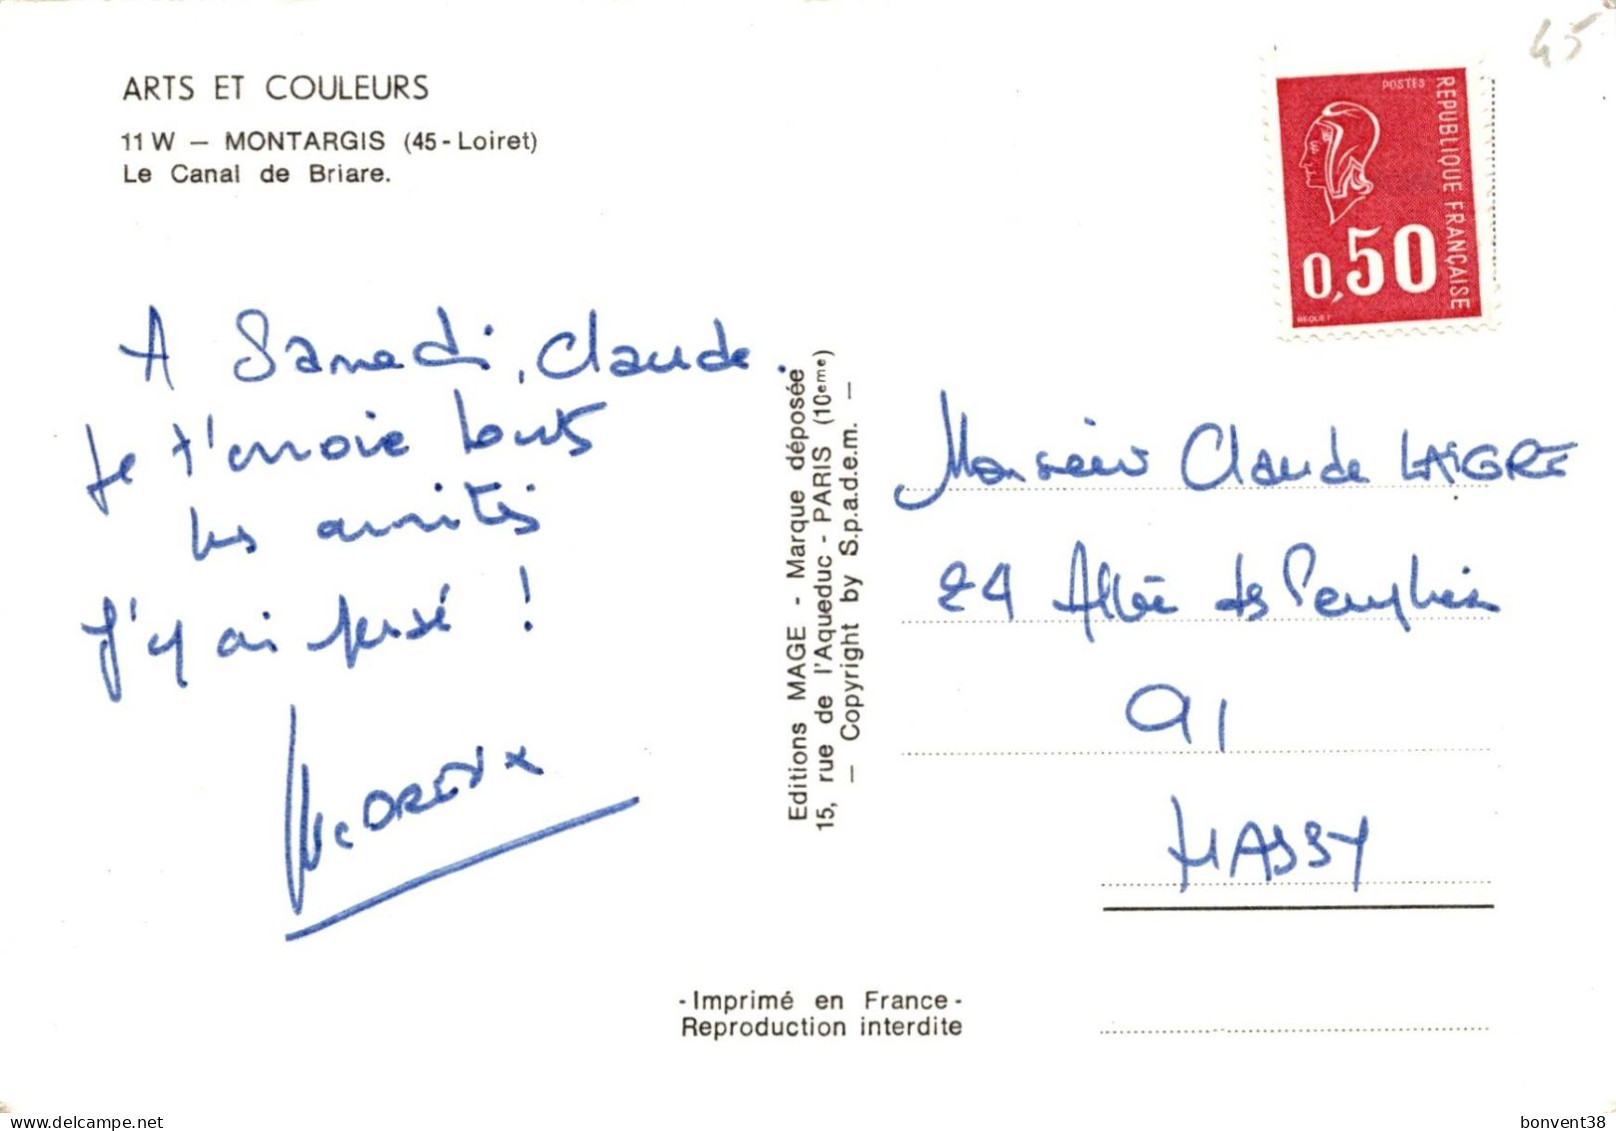 45
ARTS ET COULEURS
11 W — MONTARGIS (45 - Loiret)
Le Canal de Briare.
POSTES
REPUBLIQUE FRANÇAISE
0,50
BEQUET
A Samedi, Claude.
Je t'envoie toutes
les amitiés
J'y ai pensé !
Editions MAGE - Marque déposée
15, rue de l'Aqueduc - PARIS (10eme)
— Copyright by S.p.a.d.e.m. —
Monsieur Claude LAIGRE
24 Allée des
91
MASSY
- Imprimé en France -
Reproduction interdite
bonvent38